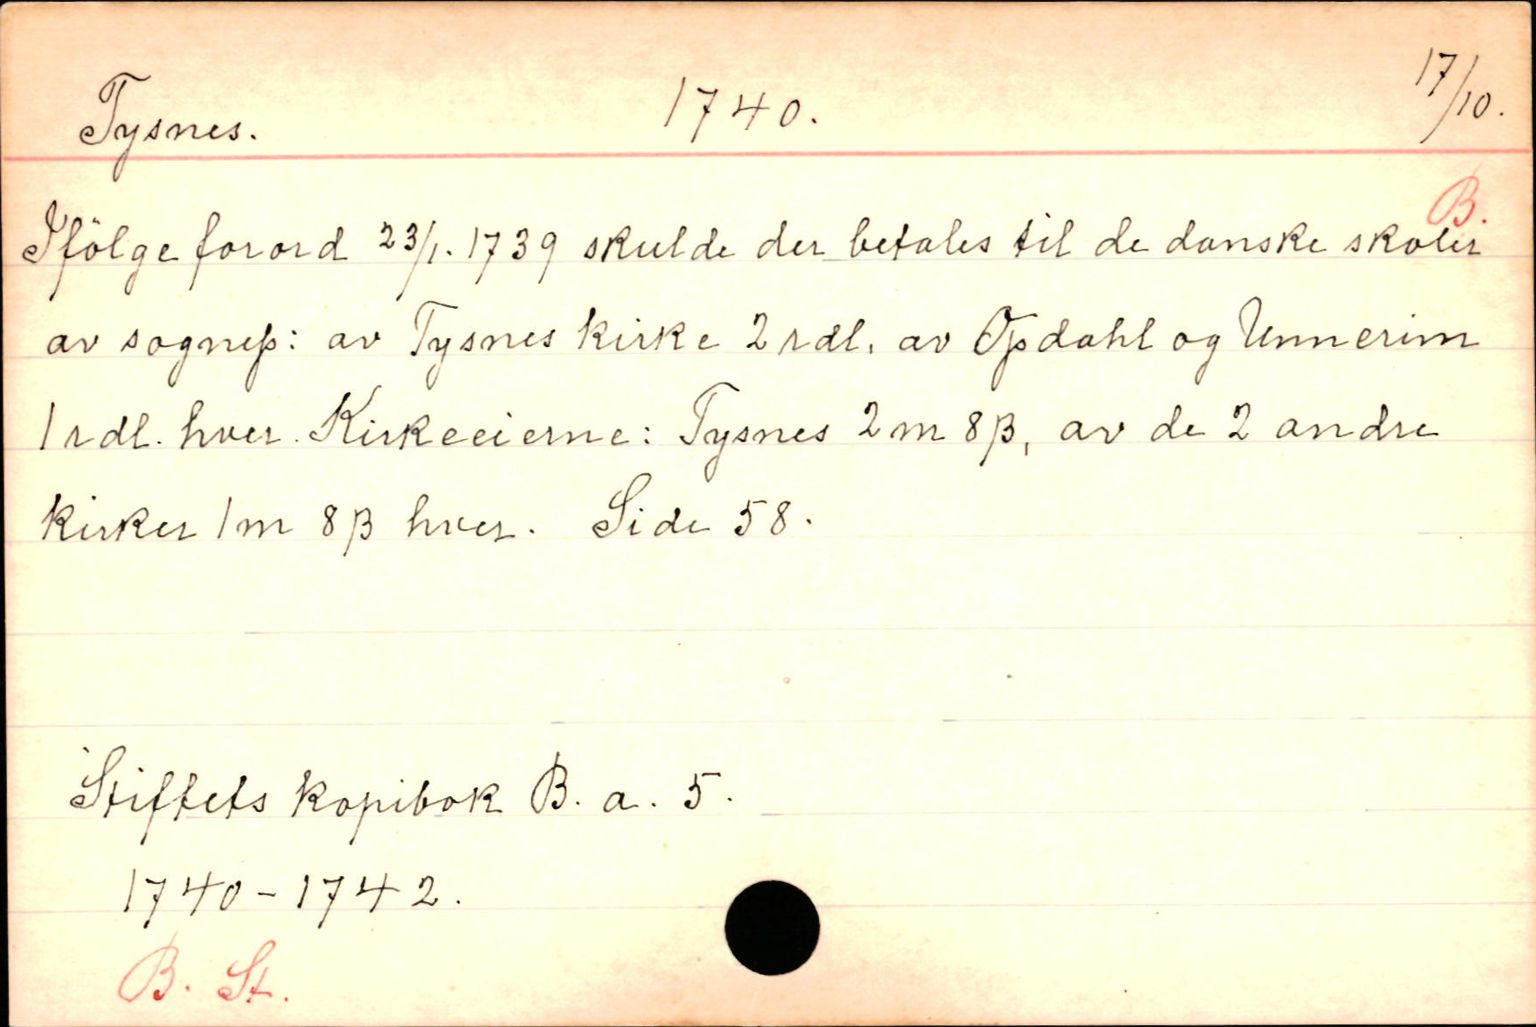 Tysnes. 1740. 17/10.
B.
Ifölge forord 23/1. 1739 skulde der betales til de danske skoler
av sognep: av Tysnes kirke 2 rdl. av Opdahl og Unnerim
1 rdl. hver. Kirkeeierne: Tysnes 2 m 8 β, av de 2 andre
kirker 1 m 8 β hver. Side 58.
Stiftets kopibok B. a. 5.
1740-1742.
B. St.